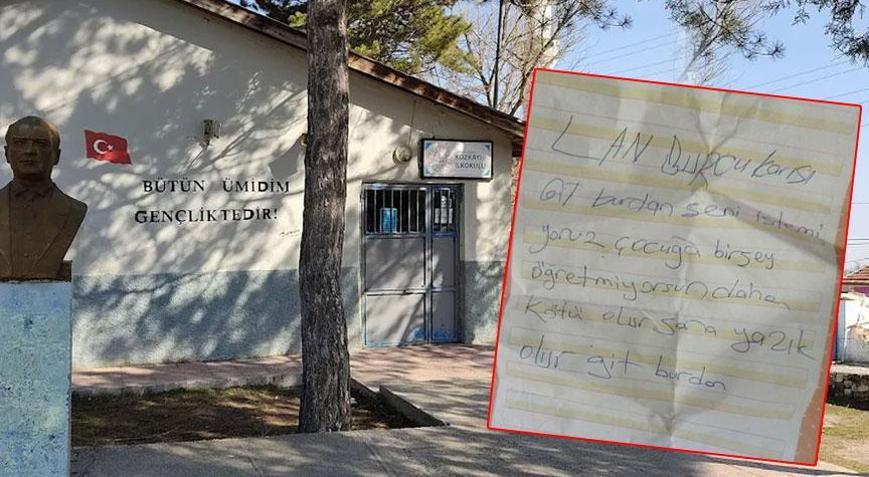 BÜTÜN ÜMİDİM
GENÇLİKTEDİR!
KOZKAYI
İLKOKULU
LAN BURCU karısı
GİT burdan seni istemi
yoruz çocuğa birşey
öğretmiyorsun daha
Kötü olur sana yazık
olur git burdan